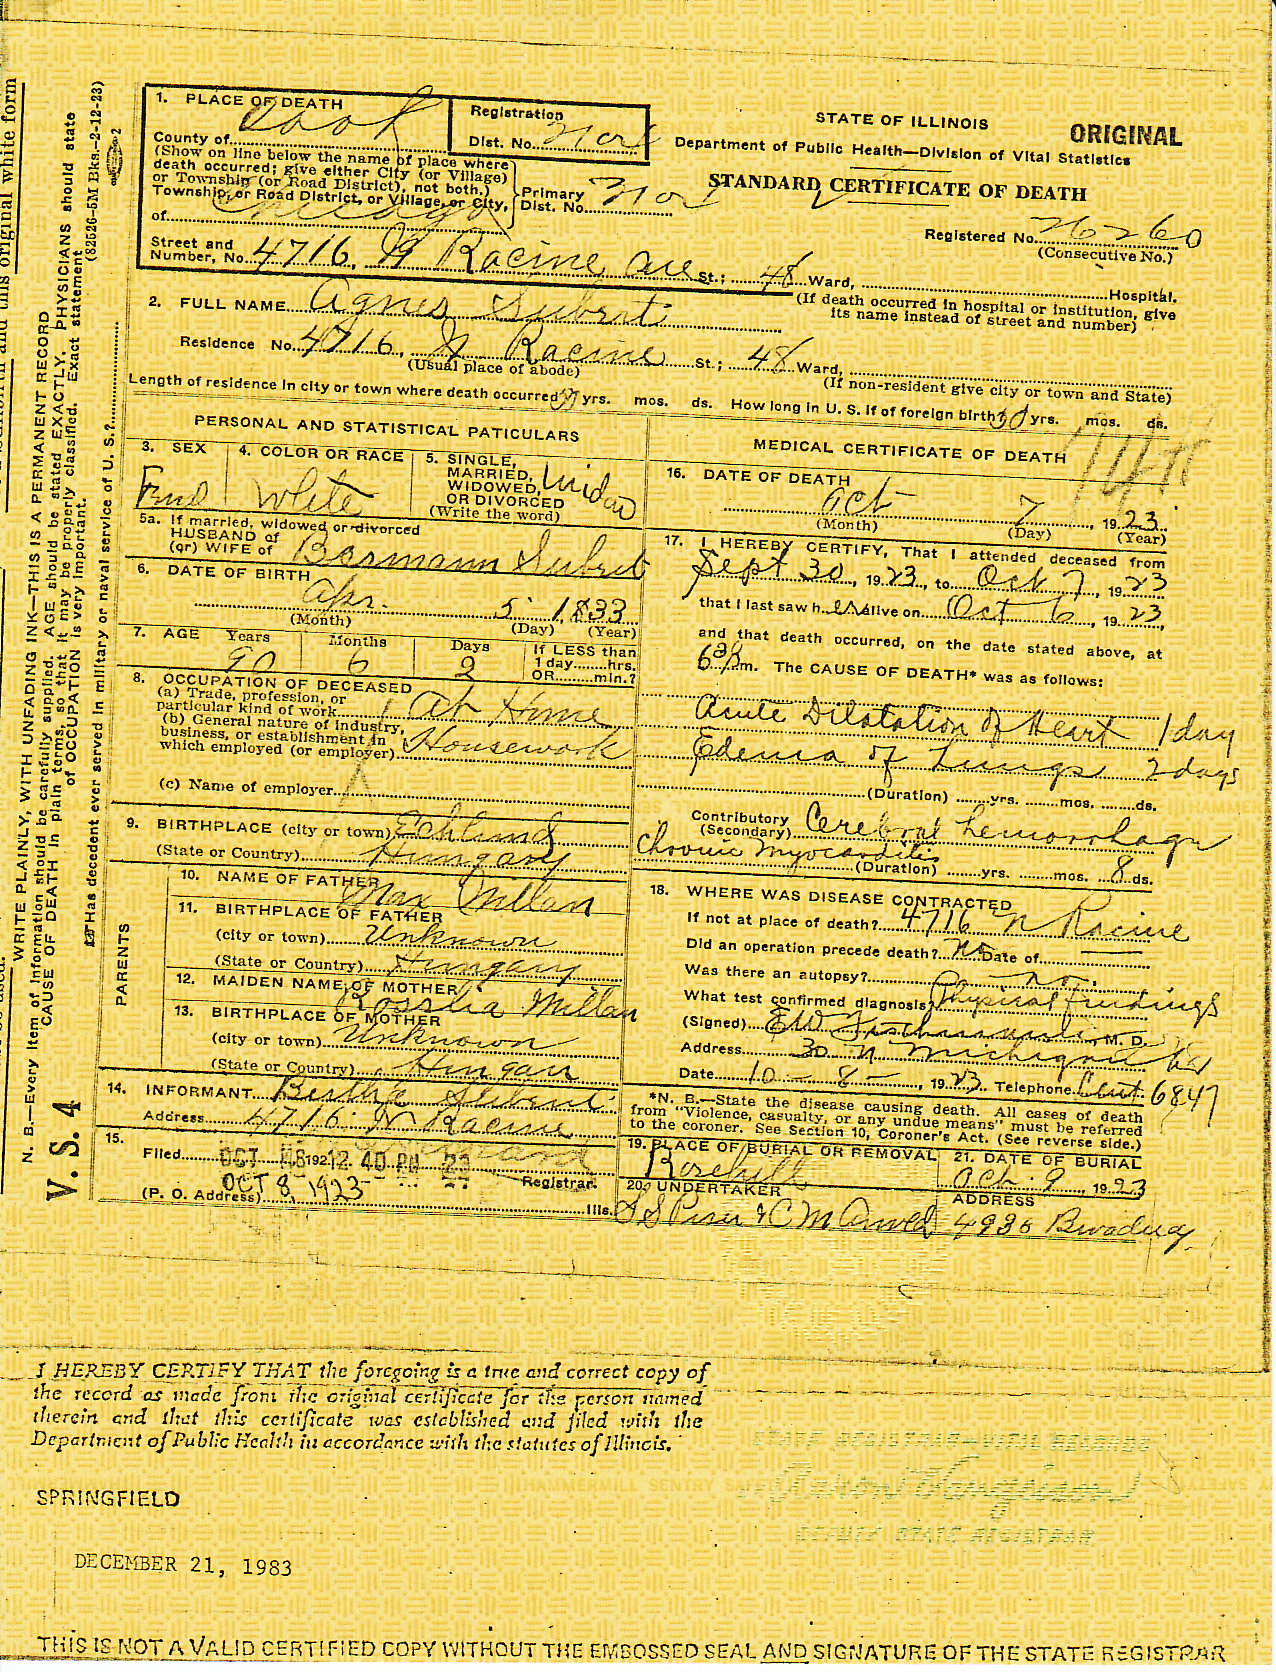 1. PLACE OF DEATH
County of Cook
(Show on line below the name of place where
death occurred; give either City (or Village)
or Township (or Road District), not both.)
Township, or Road District, or Village, or City,
of Chicago
Street and
Number, No. 4716 N Racine Ave St.; 48 Ward, Hospital.
(If death occurred in hospital or institution, give
its name instead of street and number)
Registration
Dist. No.
Primary
Dist. No.
STATE OF ILLINOIS
ORIGINAL
Department of Public Health—Division of Vital Statistics
STANDARD CERTIFICATE OF DEATH
Registered No. 26260
(Consecutive No.)
2. FULL NAME Agnes
Residence No. 4716, N Racine St.; 48 Ward,
(Usual place of abode)
(If non-resident give city or town and State)
Length of residence in city or town where death occurred yrs. mos. ds. How long in U. S. if of foreign birth? yrs. mos. ds.
PERSONAL AND STATISTICAL PATICULARS
3. SEX
4. COLOR OR RACE White
5. SINGLE,
MARRIED,
WIDOWED,
OR DIVORCED
(Write the word)
Widow
5a. If married, widowed or divorced
HUSBAND of
(or) WIFE of
6. DATE OF BIRTH
Apr. 5 1833
(Month) (Day) (Year)
7. AGE Years Months Days If LESS than
90 6 2 1 day hrs.
OR min.?
8. OCCUPATION OF DECEASED
(a) Trade, profession, or
particular kind of work At Home
(b) General nature of industry,
business, or establishment in
which employed (or employer) Housework
(c) Name of employer
9. BIRTHPLACE (city or town)
(State or Country) Hungary
PARENTS
10. NAME OF FATHER Max Millan
11. BIRTHPLACE OF FATHER
(city or town) Unknown
(State or Country) Hungary
12. MAIDEN NAME OF MOTHER Rosalia Millan
13. BIRTHPLACE OF MOTHER
(city or town) Unknown
(State or Country)
14. INFORMANT
Address 4716 N Racine
15.
Filed OCT 192 12 40 PM 23
Registrar.
OCT 8, 1923
(P. O. Address) Ills.
MEDICAL CERTIFICATE OF DEATH
16. DATE OF DEATH
Oct 7, 1923
(Month) (Day) (Year)
17. I HEREBY CERTIFY, That I attended deceased from
Sept 30, 1923, to Oct 7, 1923
that I last saw her alive on Oct 6, 1923,
and that death occurred, on the date stated above, at
m. The CAUSE OF DEATH* was as follows:
Acute Dilatation of Heart 1 day
Edema of Lungs 2 days
(Duration) yrs. mos. ds.
Contributory
(Secondary) Cerebral hemorrhage
Chronic Myocarditis
(Duration) yrs. mos. 8 ds.
18. WHERE WAS DISEASE CONTRACTED
If not at place of death? 4716 N Racine
Did an operation precede death? no Date of
Was there an autopsy? no.
What test confirmed diagnosis? Physical findings
(Signed) M. D.
Address 30 N Michigan Av
Date 10 - 8 -, 1923. Telephone Cent. 6847
*N. B.—State the disease causing death. All cases of death
from "Violence, casualty, or any undue means" must be referred
to the coroner. See Section 10, Coroner's Act. (See reverse side.)
19. PLACE OF BURIAL OR REMOVAL
Rosehill
21. DATE OF BURIAL
Oct. 9, 1923
20. UNDERTAKER
ADDRESS
4936 Broadway
N. B.—Every item of information should be carefully supplied. AGE should be stated EXACTLY. PHYSICIANS should state
CAUSE OF DEATH in plain terms, so that it may be properly classified. Exact statement
of OCCUPATION is very important.
WRITE PLAINLY, WITH UNFADING INK—THIS IS A PERMANENT RECORD
(82526-5M Bks.-2-12-23)
Has decedent ever served in military or naval service of U. S.?
V. S. 4
I HEREBY CERTIFY THAT the foregoing is a true and correct copy of
the record as made from the original certificate for the person named
therein and that this certificate was established and filed with the
Department of Public Health in accordance with the statutes of Illinois.
STATE REGISTRAR—VITAL RECORDS
DEPUTY STATE REGISTRAR
SPRINGFIELD
DECEMBER 21, 1983
THIS IS NOT A VALID CERTIFIED COPY WITHOUT THE EMBOSSED SEAL AND SIGNATURE OF THE STATE REGISTRAR